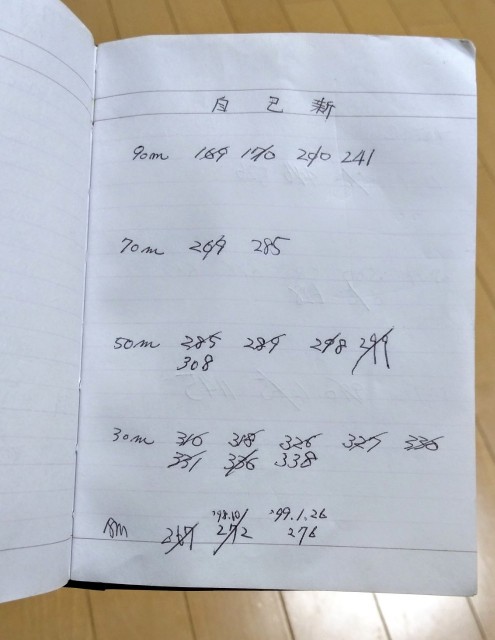 自己新
90m 169 170 240 241
70m 269 285
50m 285 289 298 299
308
30m 310 318 326 327 330
331 336 338
18m 267 '98.10/272 '99.1.26 276